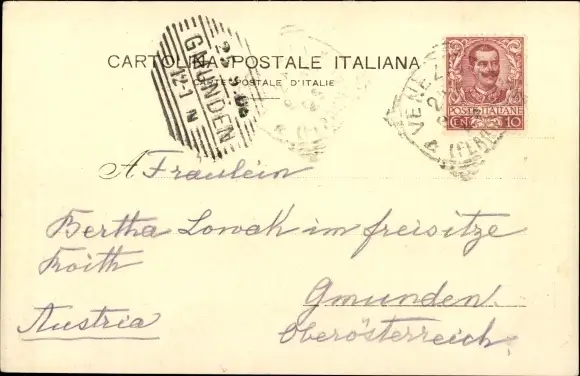 CARTOLINA POSTALE ITALIANA
CARTE POSTALE D'ITALIE
GMUNDEN
12-1 N
VENEZ
(FERR
POSTE ITALIANE
CEN. 10
A Fraulein
Bertha Lowak im freisitze
Roith
Gmunden.
Austria
Oberösterreich.